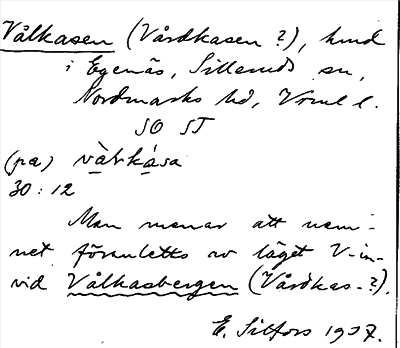 Vålkasen (Vårdkasen?), hmd
i Egenäs, Silleruds sn,
Nordmarks hd, Vrml l.
SO ST
(pa) vàḷká̱sa
30:12
Man menar att nam-
net föranletts av läget V-in-
vid Vålkasbergen (Vårdkas-?).
E. Silfors 1937.